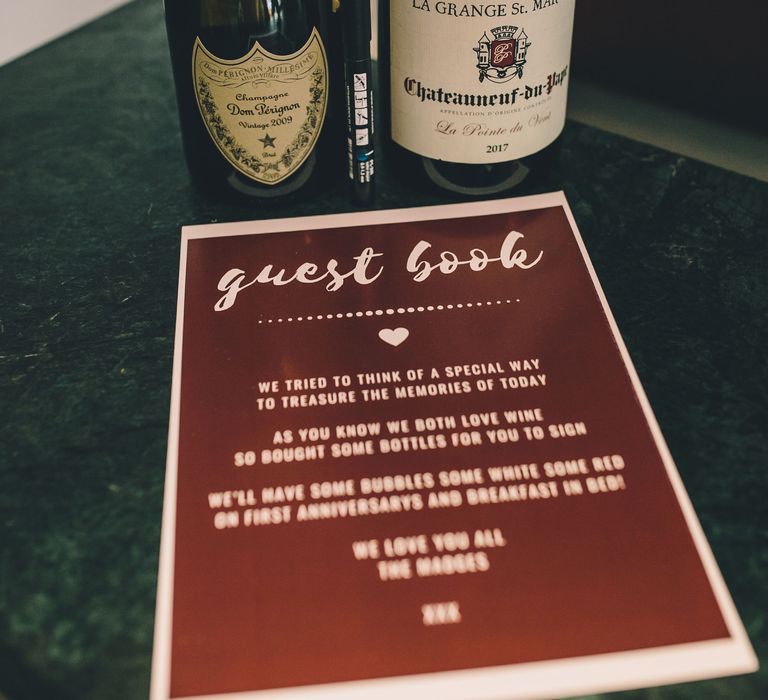 Dom Pérignon Millésime
Altum Villare
Champagne
Dom Pérignon
Vintage 2009
Brut
LA GRANGE St. MAR
Chateauneuf-du-Pape
APPELLATION D'ORIGINE CONTROLÉE
La Pointe du Vent
2017
guest book
WE TRIED TO THINK OF A SPECIAL WAY
TO TREASURE THE MEMORIES OF TODAY
AS YOU KNOW WE BOTH LOVE WINE
SO BOUGHT SOME BOTTLES FOR YOU TO SIGN
WE'LL HAVE SOME BUBBLES SOME WHITE SOME RED
ON FIRST ANNIVERSARYS AND BREAKFAST IN BED!
WE LOVE YOU ALL
THE MADGES
XXX